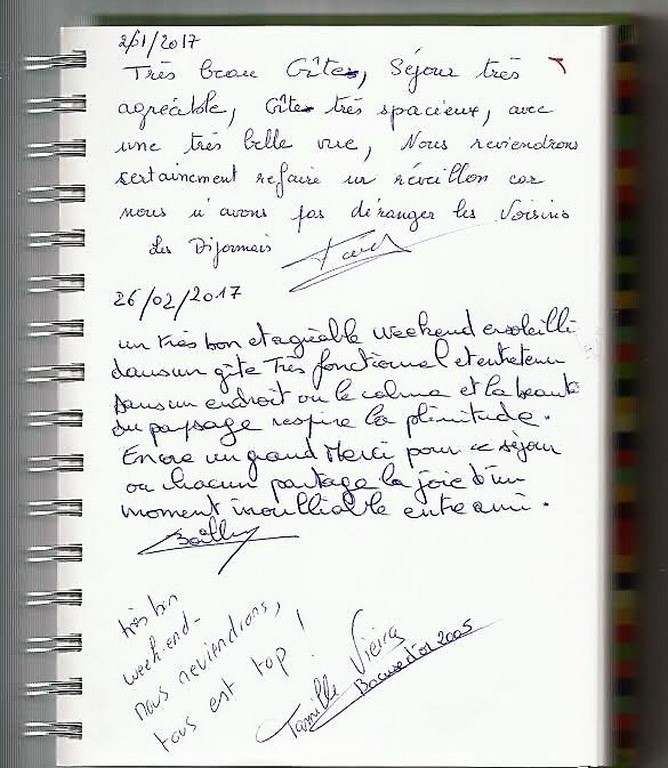 2/1/2017
Très beau Gîte, Séjour très
agréable, Gîte très spacieux, avec
une très belle vue, Nous reviendrons
certainement refaire un réveillon car
nous n'avons pas déranger les Voisins
Les Dijonnais
26/02/2017
un très bon et agréable weekend ensoleillé
dans un gîte très fonctionnel et entretenu
dans un endroit ou le calme et la beauté
du paysage respire la plénitude.
Encore un grand Merci pour ce séjour
ou chacun partage la joie d'un
moment inoulliable entre ami.
très bon
week-end-
nous reviendrons,
tous est top !
Famille Vieira
Bocuse d'or 2005